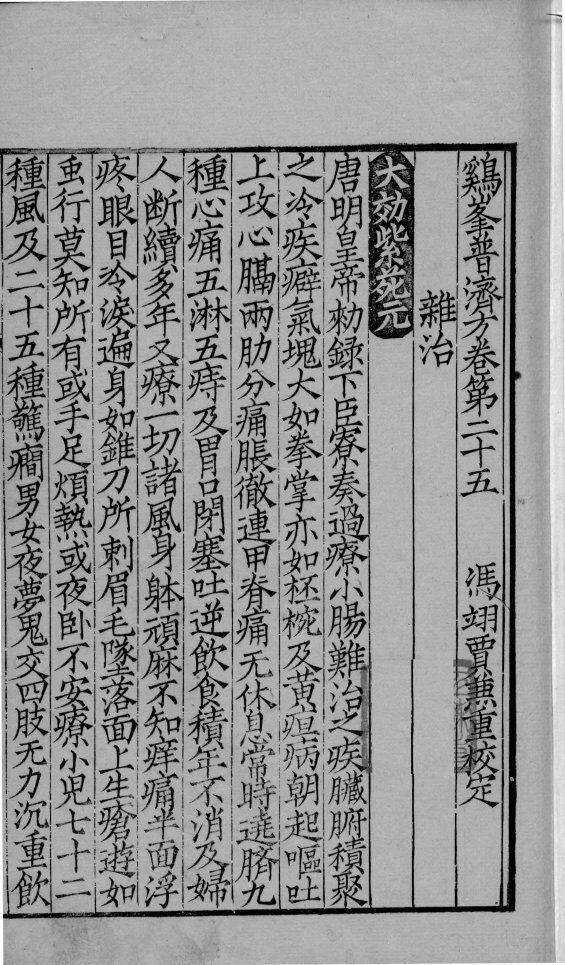 鷄峯普濟方卷第二十五　馮翊賈兼重校定
雜治
大効紫菀元
唐明皇帝勑録下臣寮奏過療小腸難治之疾臟腑積聚
之冷疾癖氣塊大如拳掌亦如柸椀及黃疸病朝起嘔吐
上攻心膈兩肋分痛脹徹連甲脊痛无休息常時遶臍九
種心痛五淋五痔及胃口閉塞吐逆飲食積年不消及婦
人断續多年又療一切諸風身躰頑麻不知痒痛半面浮
疼眼目冷淚遍身如錐刀所刺眉毛墜落面上生瘡遊如
虫行莫知所有或手足煩熱或夜卧不安療小兒七十二
種風及二十五種驚癇男女夜夢鬼交四肢无力沉重飲